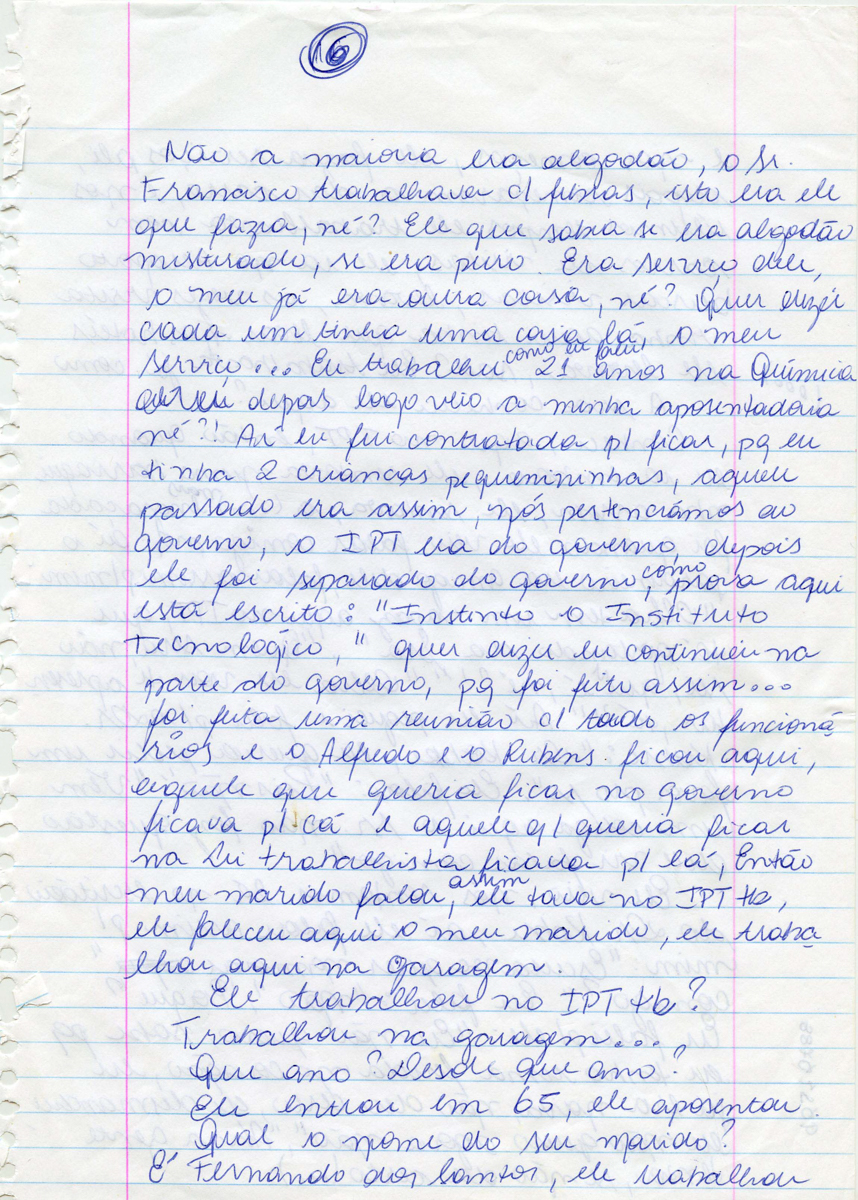 16
Não a maioria era algodão, o Sr.
Francisco trabalhava c/ fibras, isto era ele
que fazia, né? Ele que sabia se era algodão
misturado, se era puro. Era serviço dele,
o meu já era outra coisa, né? Quer dizer
cada um tinha uma coisa lá, o meu
serviço... Eu trabalhei como eu falei, 21 anos na Química
depois logo veio a minha aposentadoria
né?! Aí eu fui contratada p/ ficar, pq eu
tinha 2 crianças pequenininhas, aquele
passado era assim, como nós pertencíamos ao
governo, o IPT era do governo, depois
ele foi separado do governo, como prova aqui
está escrito: "Instinto o Instituto
Tecnológico," quer dizer eu continuei na
parte do governo, pq foi feito assim...
foi feita uma reunião c/ todo os funcioná
rios e o Alfredo e o Rubens ficou aqui,
aquele que queria ficar no governo
ficava p/ cá e aquele q/ queria ficar
na Lei trabalhista ficava p/ lá, Então
meu marido falou, assim ele tava no IPT tb,
ele faleceu aqui o meu marido, ele traba
lhou aqui na garagem.
Ele trabalhou no IPT tb?
Trabalhou na garagem...,
Que ano? Desde que ano?
Ele entrou em 65, ele aposentou.
Qual o nome do seu marido?
É Fernando dos Santos, ele trabalhou